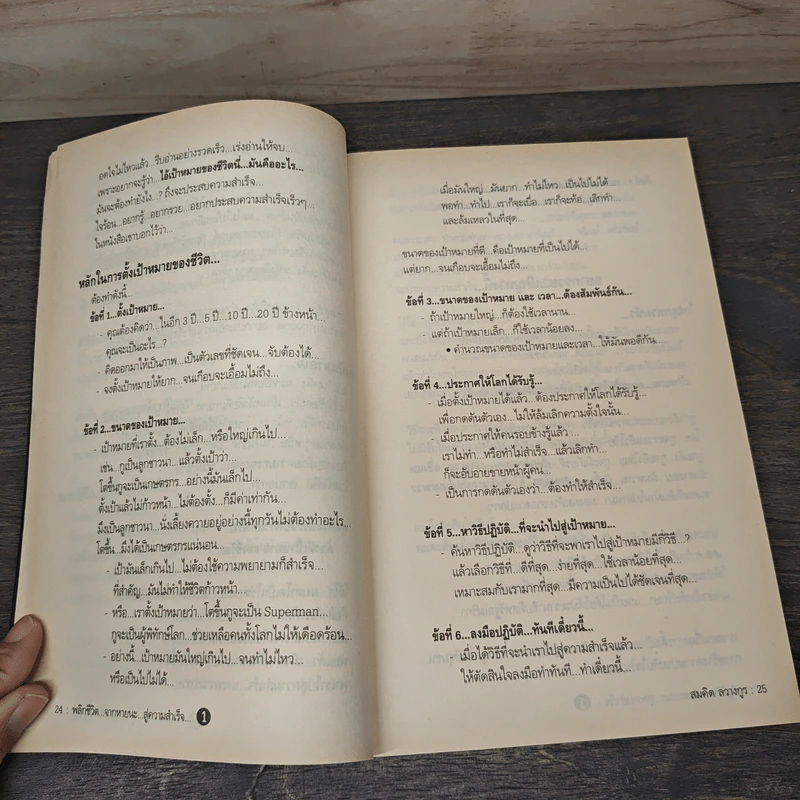 อดใจไม่ไหวแล้ว...รีบอ่านอย่างรวดเร็ว...เร่งอ่านให้จบ...
เพราะอยากจะรู้ว่า...ไอ้เป้าหมายของชีวิตนี่...มันคืออะไร...
มันจะต้องทำยังไง...? ถึงจะประสบความสำเร็จ...
ใจร้อน...อยากรู้...อยากรวย...อยากประสบความสำเร็จเร็วๆ...
ในหนังสือเขาบอกไว้ว่า...
หลักในการตั้งเป้าหมายของชีวิต...
ต้องทำดังนี้...
ข้อที่ 1...ตั้งเป้าหมาย...
- คุณต้องคิดว่า...ในอีก 3 ปี...5 ปี...10 ปี...20 ปี ข้างหน้า...
คุณจะเป็นอะไร...?
- คิดออกมาให้เป็นภาพ...เป็นตัวเลขที่ชัดเจน...จับต้องได้...
- จงตั้งเป้าหมายให้ยาก...จนเกือบจะเอื้อมไม่ถึง...
ข้อที่ 2...ขนาดของเป้าหมาย...
- เป้าหมายที่เราตั้ง...ต้องไม่เล็ก...หรือใหญ่เกินไป...
เช่น...กูเป็นลูกชาวนา...แล้วตั้งเป้าว่า...
โตขึ้นกูจะเป็นเกษตรกร...อย่างนี้มันเล็กไป...
ตั้งเป้าแล้วไม่ก้าวหน้า...ไม่ต้องตั้ง...ก็มีค่าเท่ากัน...
มึงเป็นลูกชาวนา...นั่งเลี้ยงควายอยู่อย่างนี้ทุกวันไม่ต้องทำอะไร...
โตขึ้น...มึงได้เป็นเกษตรกรแน่นอน...
- เป้ามันเล็กเกินไป...ไม่ต้องใช้ความพยายามก็สำเร็จ...
ที่สำคัญ...มันไม่ทำให้ชีวิตก้าวหน้า...
- หรือ...เราตั้งเป้าหมายว่า...โตขึ้นกูจะเป็น Superman...
กูจะเป็นผู้พิทักษ์โลก...ช่วยเหลือคนทั้งโลกไม่ให้เดือดร้อน...
- อย่างนี้...เป้าหมายมันใหญ่เกินไป...จนทำไม่ไหว...
หรือเป็นไปไม่ได้...
24 : พลิกชีวิต...จากหายนะ...สู่ความสำเร็จ... 1
เมื่อมันใหญ่...มันยาก...ทำไม่ไหว...เป็นไปไม่ได้
พอทำ...ทำไป...เราก็จะเบื่อ...เราก็จะท้อ...เลิกทำ...
และล้มเหลวในที่สุด...
ขนาดของเป้าหมายที่ดี...คือเป้าหมายที่เป็นไปได้...
แต่ยาก...จนเกือบจะเอื้อมไม่ถึง...
ข้อที่ 3...ขนาดของเป้าหมาย และ เวลา...ต้องสัมพันธ์กัน...
- ถ้าเป้าหมายใหญ่...ก็ต้องใช้เวลานาน...
- แต่ถ้าเป้าหมายเล็ก...ก็ใช้เวลาน้อยลง...
• คำนวณขนาดของเป้าหมายและเวลา...ให้มันพอดีกัน...
ข้อที่ 4...ประกาศให้โลกได้รับรู้...
- เมื่อตั้งเป้าหมายได้แล้ว...ต้องประกาศให้โลกได้รับรู้...
เพื่อกดดันตัวเอง...ไม่ให้ล้มเลิกความตั้งใจนั้น...
- เมื่อประกาศให้คนรอบข้างรู้แล้ว...
เราไม่ทำ...หรือทำไม่สำเร็จ...แล้วเลิกทำ...
ก็จะอับอายขายหน้าผู้คน...
- เป็นการกดดันตัวเองว่า...ต้องทำให้สำเร็จ...
ข้อที่ 5...หาวิธีปฏิบัติ...ที่จะนำไปสู่เป้าหมาย...
- ค้นหาวิธีปฏิบัติ...ดูว่าวิธีที่จะพาเราไปสู่เป้าหมายมีกี่วิธี...?
แล้วเลือกวิธีที่...ดีที่สุด...ง่ายที่สุด...ใช้เวลาน้อยที่สุด...
เหมาะสมกับเรามากที่สุด...มีความเป็นไปได้ชัดเจนที่สุด...
ข้อที่ 6...ลงมือปฏิบัติ...ทันทีเดี๋ยวนี้...
- เมื่อได้วิธีที่จะนำเราไปสู่ความสำเร็จแล้ว...
ให้ตัดสินใจลงมือทำทันที...ทำเดี๋ยวนี้...
สมคิด ลวางกูร : 25